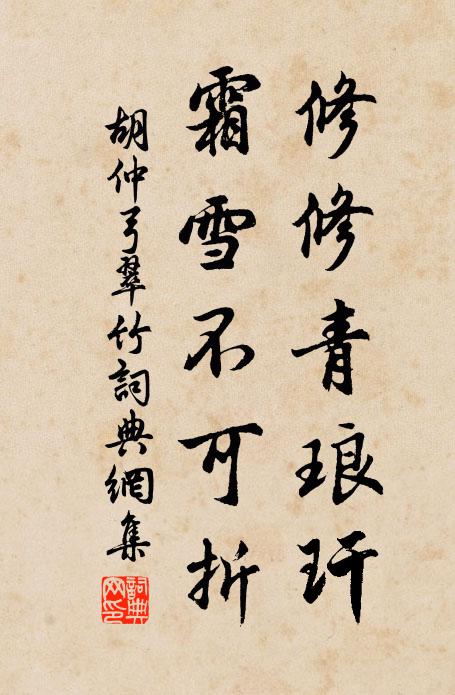 修修青琅玕
霜雪不可折
胡仲弓翠竹詞典網集
詞典網印